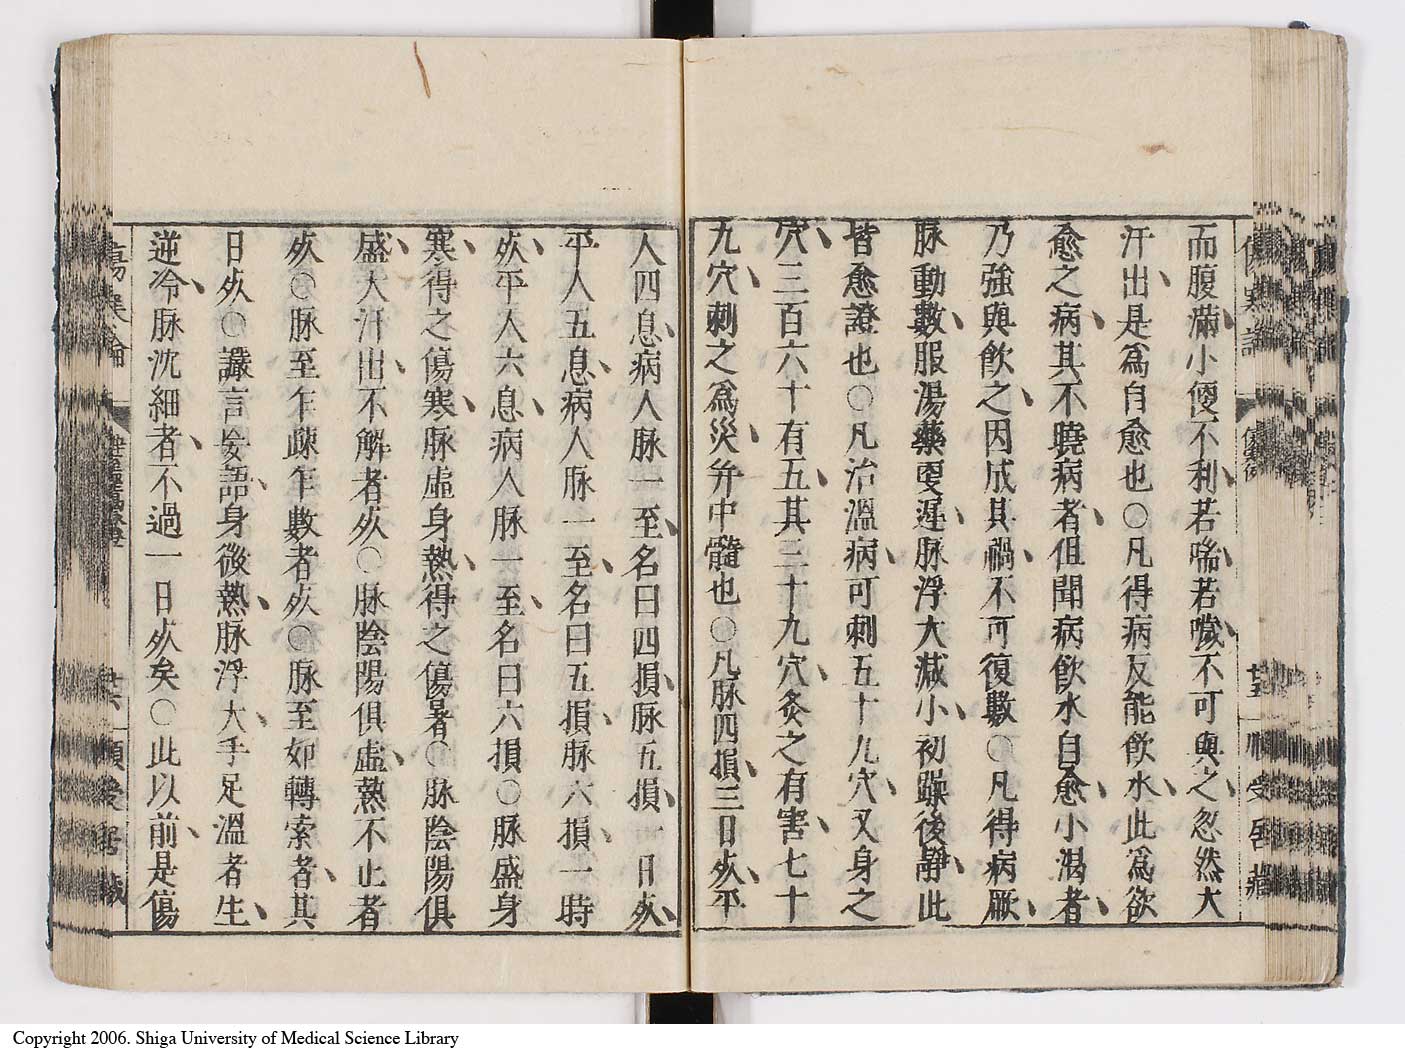 而腹滿小便不利若喘若噦不可與之忽然大
汗出是爲自愈也○凡得病反能飮水此爲欲
愈之病其不曉病者但聞病飮水自愈小渴者
乃強與飮之因成其禍不可復數○凡得病厥
脉動數服湯藥更遲脉浮大減小初躁後靜此
皆愈證也○凡治溫病可刺五十九穴又身之
穴三百六十有五其三十九穴灸之有害七十
九穴刺之爲災并中髓也○凡脉四損三日死平
人四息病人脉一至名曰四損脉五損一日死
平人五息病人脉一至名曰五損脉六損一時
死平人六息病人脉一至名曰六損○脉盛身
寒得之傷寒脉虛身熱得之傷暑○脉陰陽俱
盛大汗出不解者死○脉陰陽俱虛熱不止者
死○脉至乍疎乍數者死○脉至如轉索者其
日死○讝言妄語身微熱脉浮大手足溫者生
逆冷脉沈細者不過一日死矣○此以前是傷
傷寒論
廿六
Copyright 2006. Shiga University of Medical Science Library